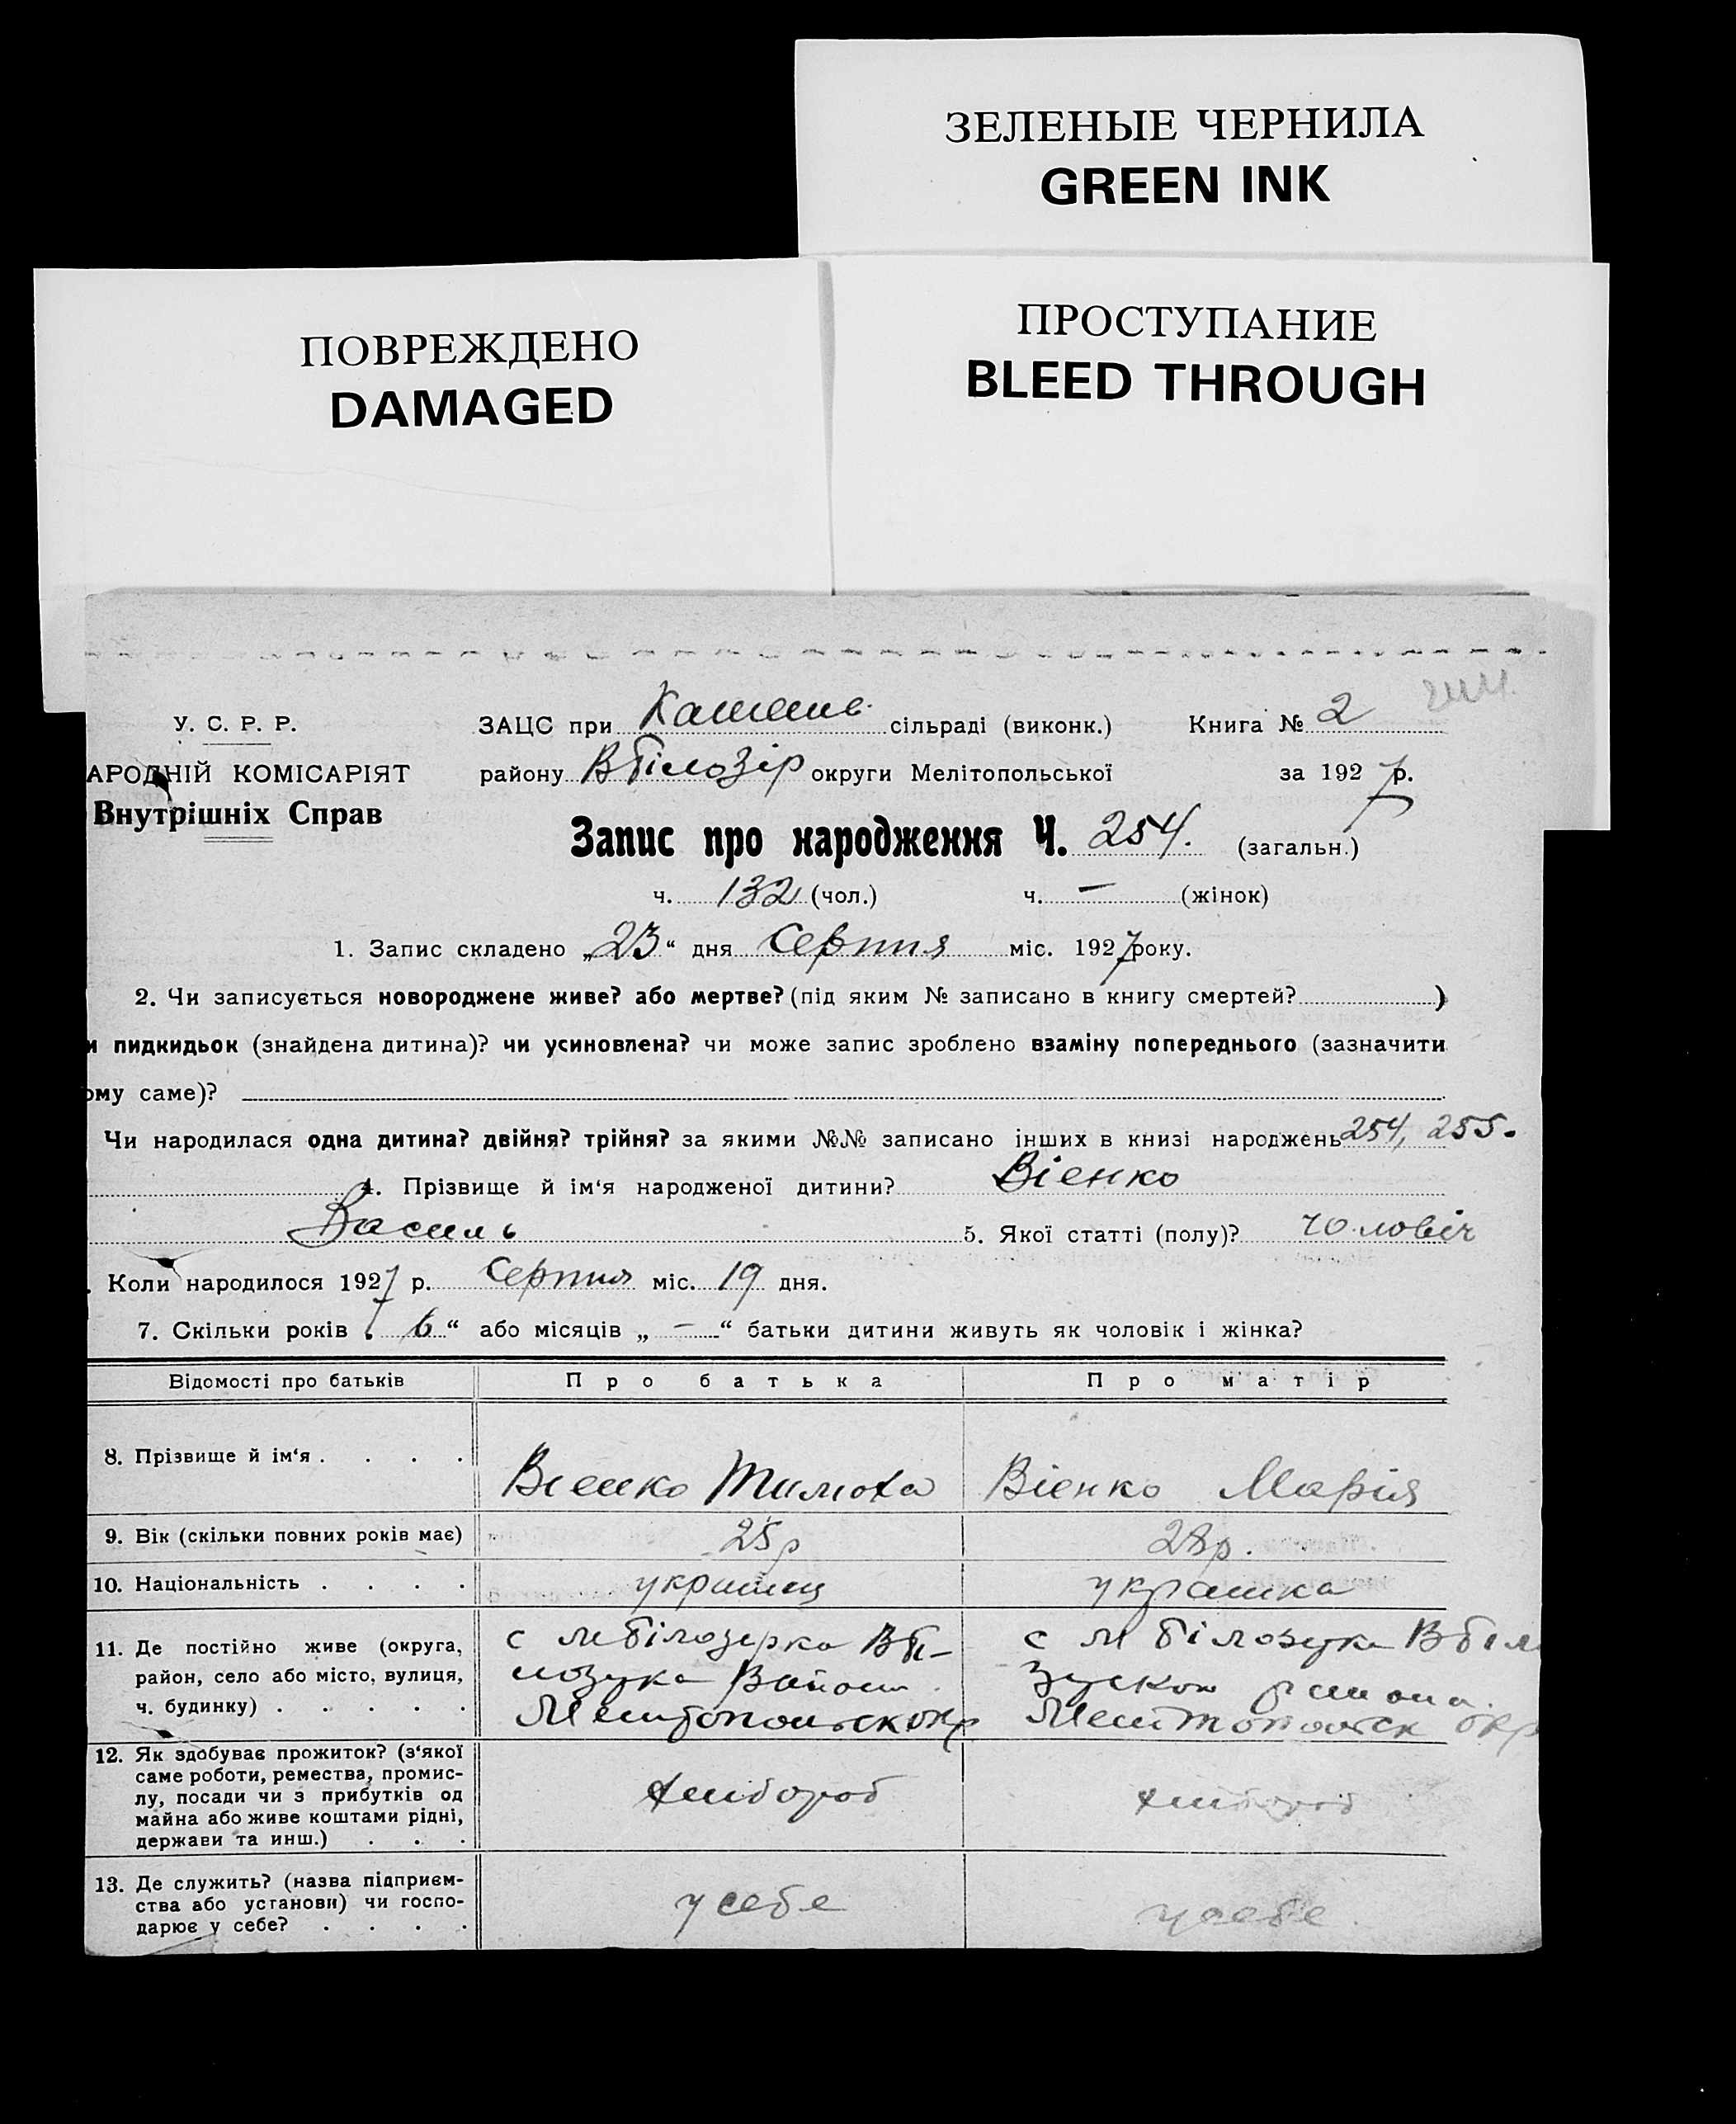 ЗЕЛЕНЫЕ ЧЕРНИЛА
GREEN INK
ПОВРЕЖДЕНО
DAMAGED
ПРОСТУПАНИЕ
BLEED THROUGH
У. С. Р. Р.
ЗАЦС при сільраді (виконк.) Книга № 2
АРОДНІЙ КОМІСАРІЯТ
району Вбілозір округи Мелітопольської за 1927 р.
Внутрішніх Справ
Запис про народження Ч. 254. (загальн.)
ч. 132 (чол.) ч. — (жінок)
1. Запис складено „23“ дня Серпня міс. 1927 року.
2. Чи записується новороджене живе? або мертве? (під яким № записано в книгу смертей? )
и пидкидьок (знайдена дитина)? чи усиновлена? чи може запис зроблено взаміну попереднього (зазначити
ому саме)?
Чи народилася одна дитина? двійня? трійня? за якими №№ записано інших в книзі народжень 254, 255.
4. Прізвище й ім‘я народженої дитини? Віенко
Василь 5. Якої статті (полу)? чоловіч
. Коли народилося 1927 р. Серпня міс. 19 дня.
7. Скільки років „6“ або місяців „—“ батьки дитини живуть як чоловік і жінка?
Відомості про батьків Про батька Про матір
8. Прізвище й ім‘я . . . . Віенко Тимоха Віенко Марія
9. Вік (скільки повних років має) 25р 28р.
10. Національність . . . . украинец украинка
11. Де постійно живе (округа, с М білозірка Вбі-
район, село або місто, вулиця,
ч. будинку) . . . . . Мелитопольск окр
12. Як здобуває прожиток? (з‘якої
саме роботи, ремества, промис-
лу, посади чи з прибутків од хлібороб хлібороб
майна або живе коштами рідні,
держави та инш.) . . .
13. Де служить? (назва підприєм-
ства або установи) чи госпо- у себе у себе
дарює у себе? . . . .